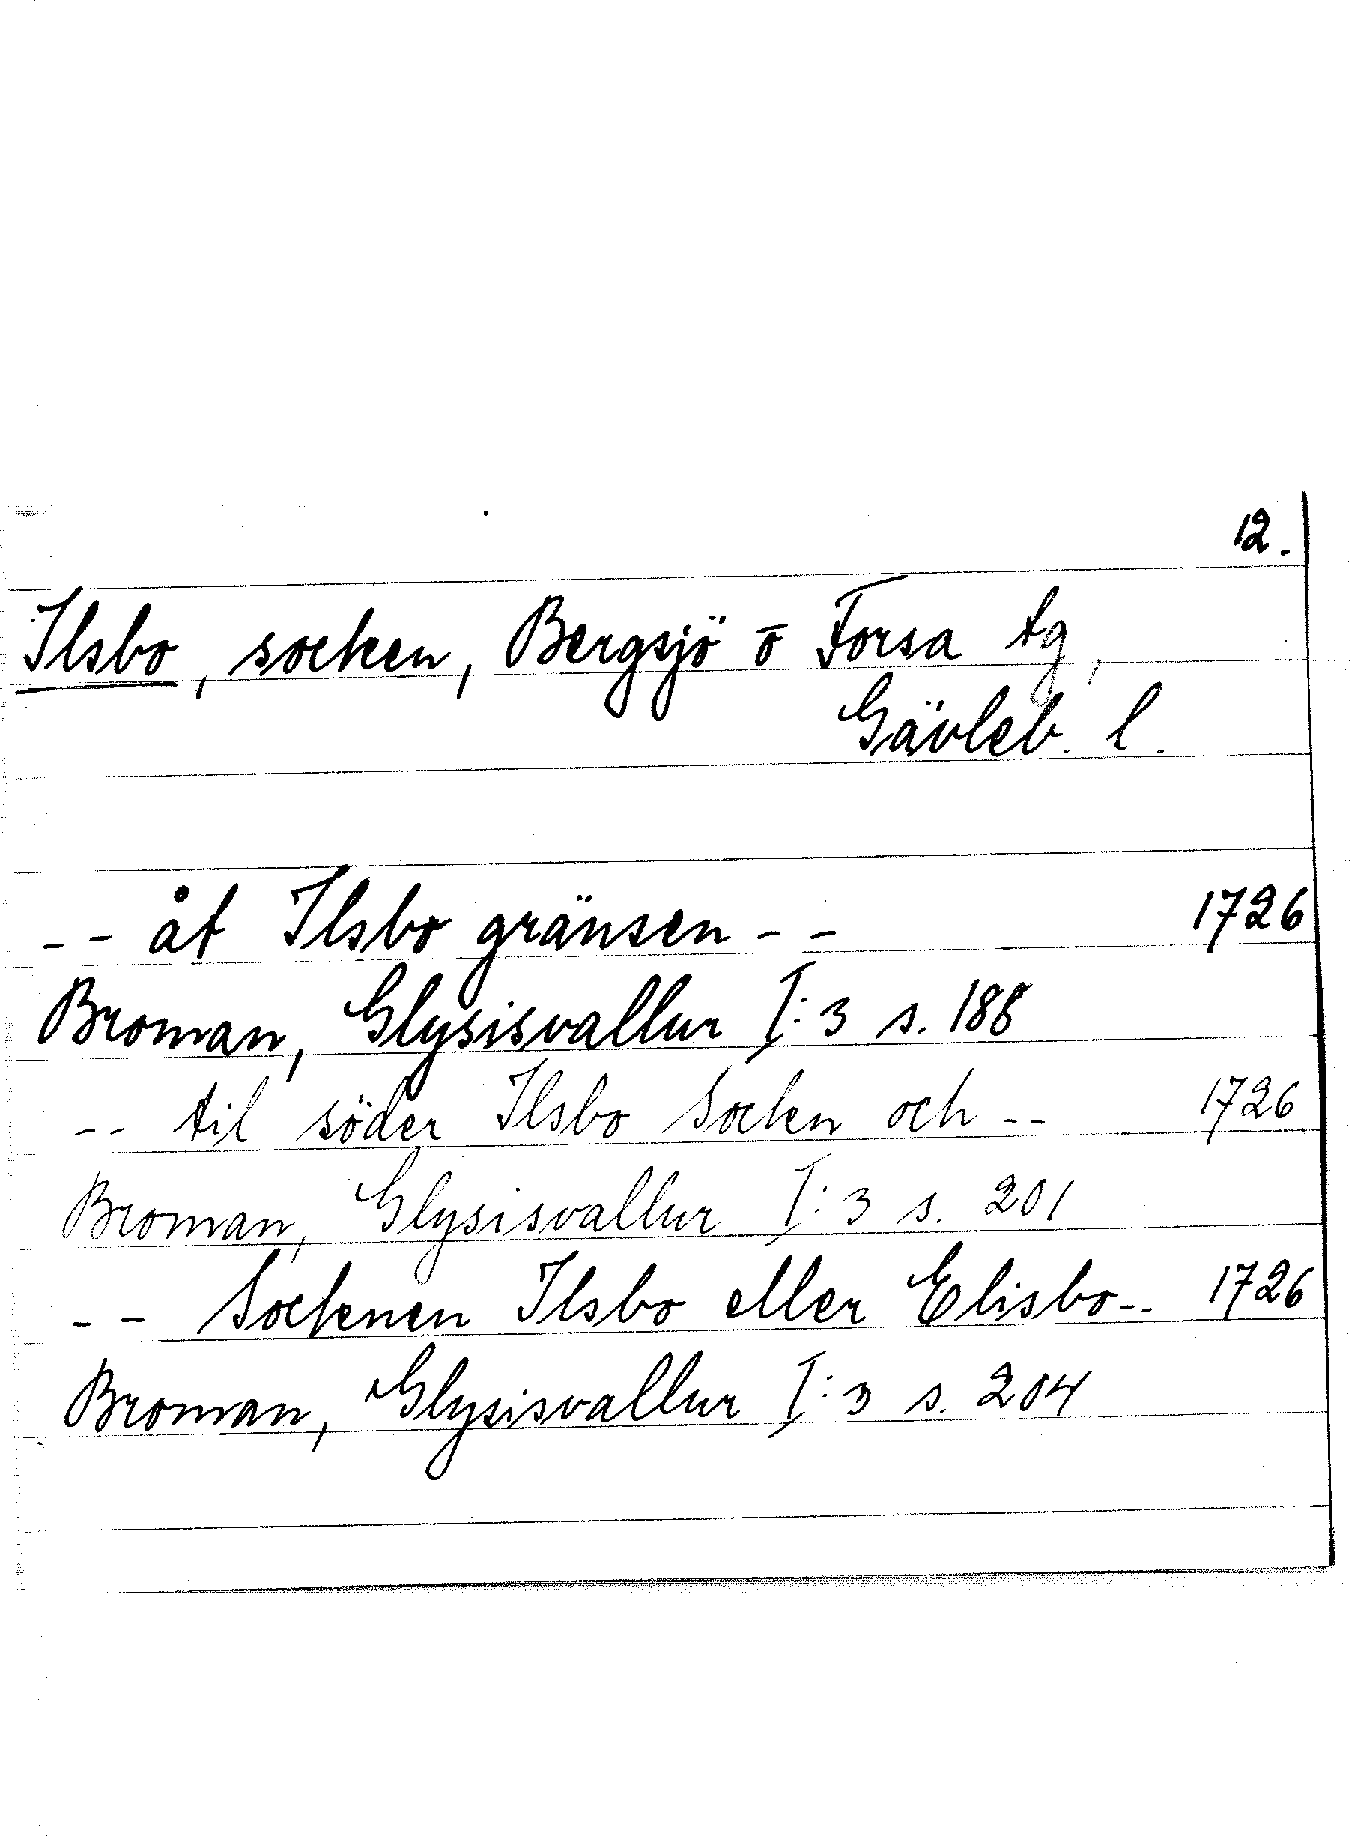 12.
Ilsbo, socken, Bergsjö o Forsa tg,
Gävleb. l.
-- åt Ilsbo gränsen -- 1726
Broman, Glysisvallur I:3 s. 188
-- til söder Ilsbo Socken och -- 1726
Broman, Glysisvallur I:3 s. 201
-- Sockenen Ilsbo eller Elisbo -- 1726
Broman, Glysisvallur I:3 s. 204